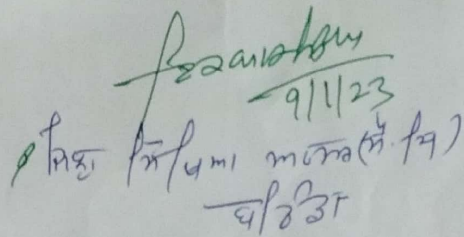 9/1/23
ਜ਼ਿਲ੍ਹਾ ਸਿੱਖਿਆ ਅਫਸਰ (ਸੈ.ਸਿ)
ਬਠਿੰਡਾ